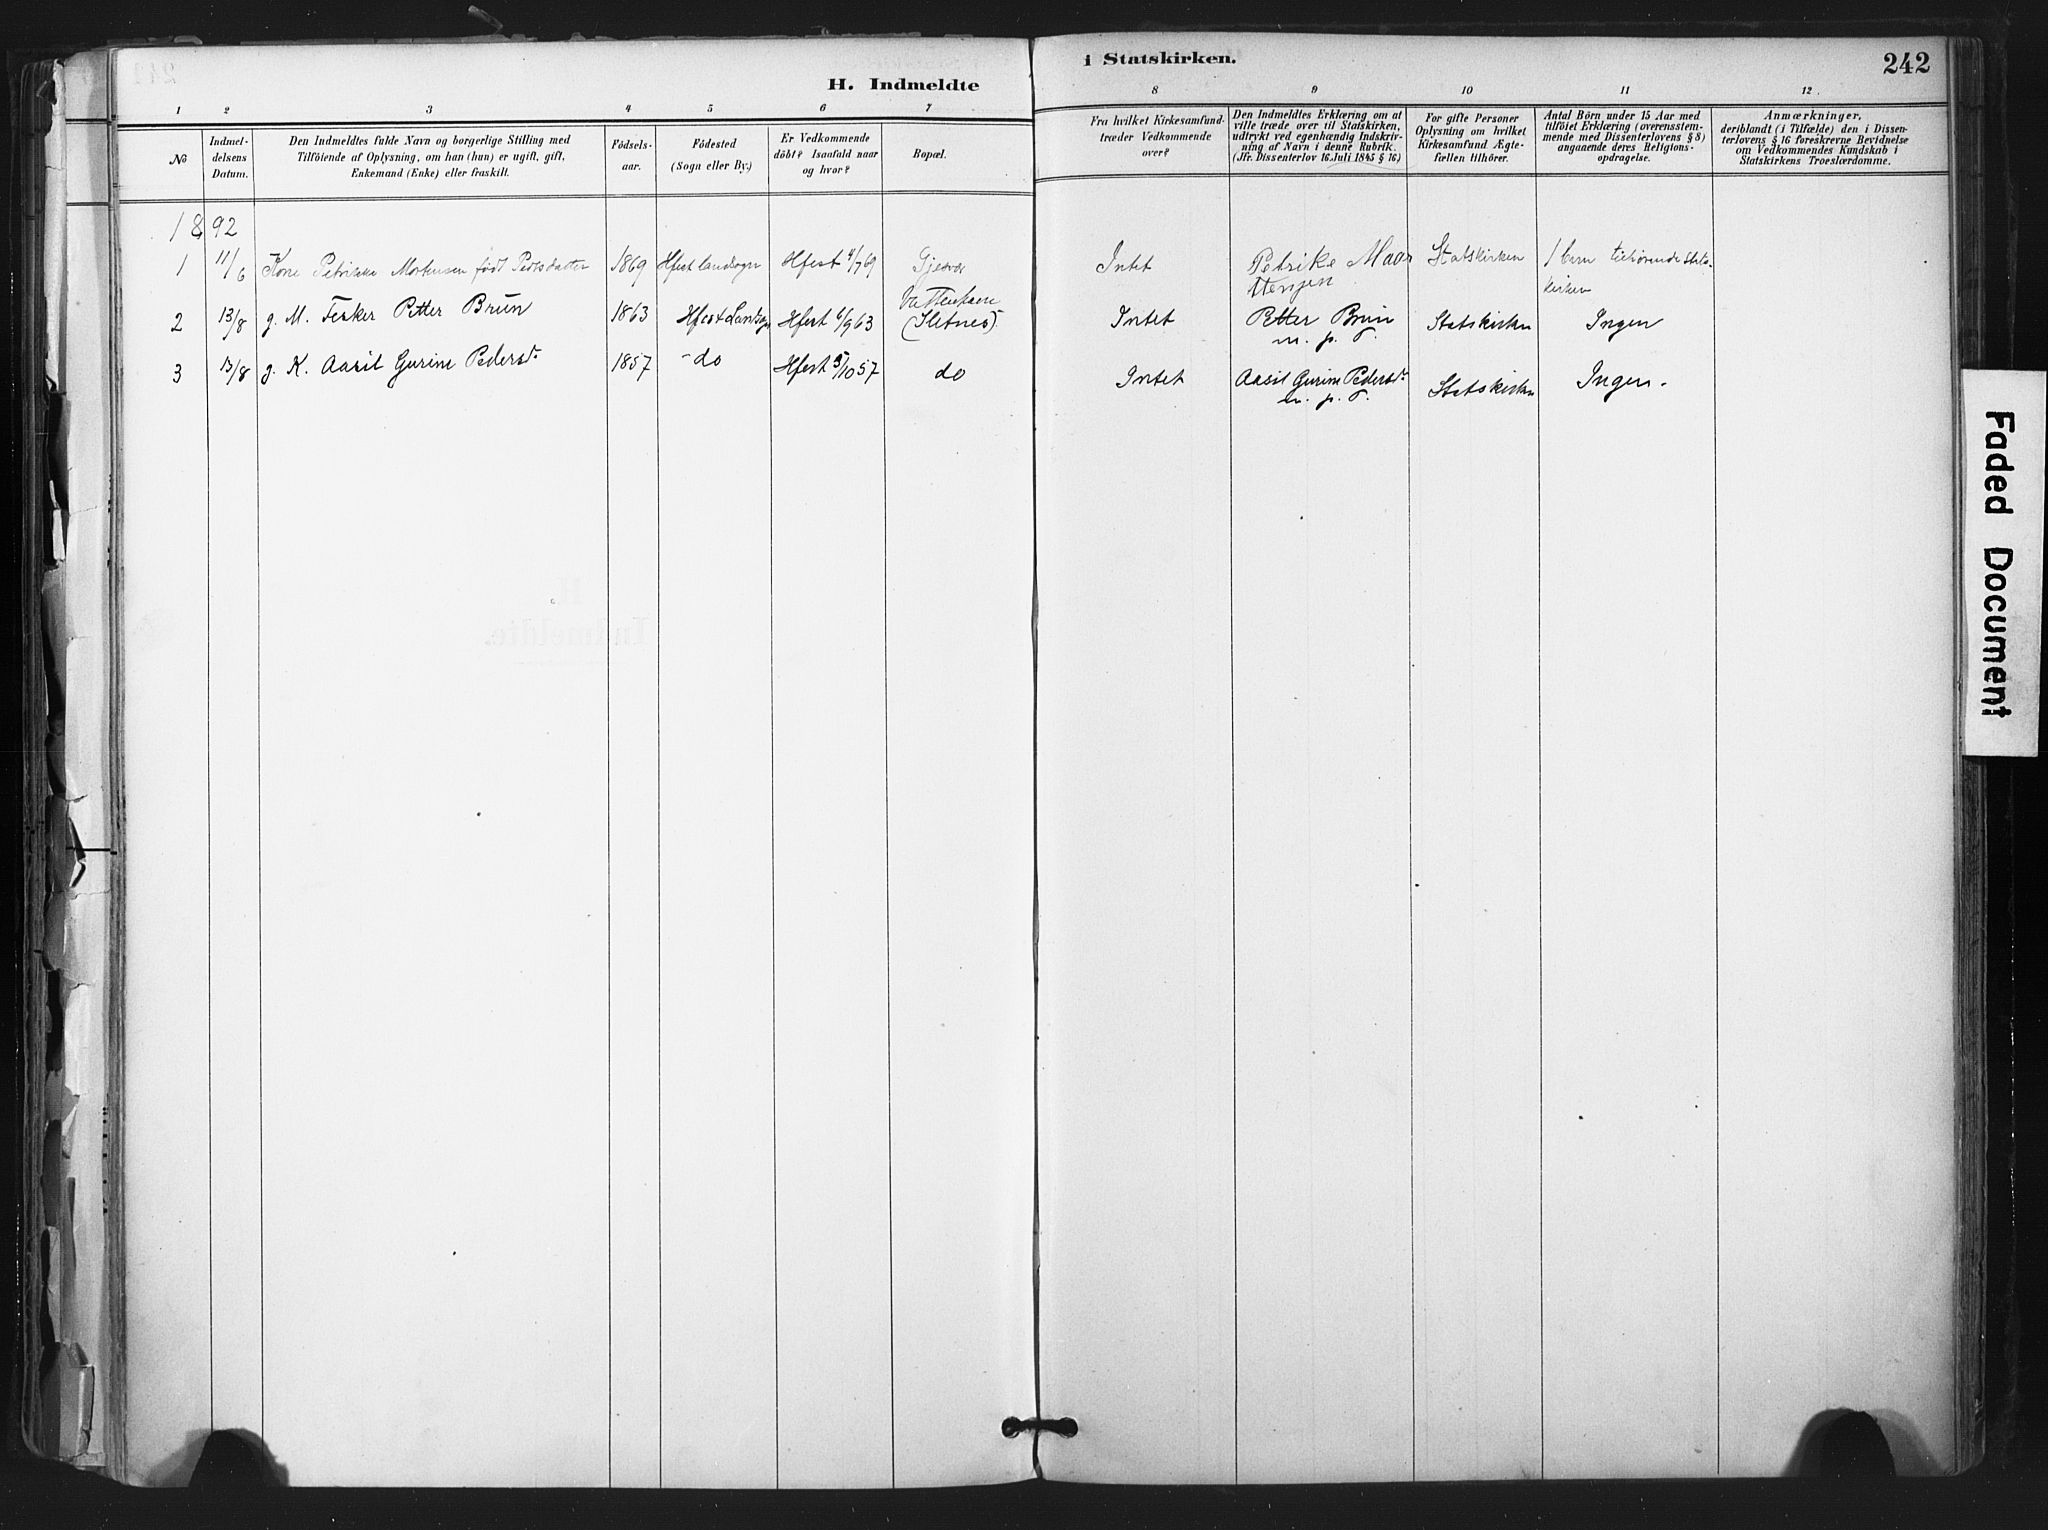 H. Indmeldte
i Statskirken.
242
1 2 3 4 5 6 7 8 9 10 11 12
No
Indmel-
delsens
Datum.
Den Indmeldtes fulde Navn og borgerlige Stilling med
Tilföiende af Oplysning, om han (hun) er ugift, gift,
Enkemand (Enke) eller fraskilt.
Födsels-
aar.
Födested
(Sogn eller By.)
Er Vedkommende
döbt? Isaafald naar
og hvor?
Bopæl.
Fra hvilket Kirkesamfund
træder Vedkommende
over?
Den Indmeldtes Erklæring om at
ville træde over til Statskirken,
udtrykt ved egenhændig Indskriv-
ning af Navn i denne Rubrik.
(Jfr. Dissenterlov 16. Juli 1845 § 16)
For gifte Personer
Oplysning om hvilket
Kirkesamfund Ægte-
fællen tilhörer.
Antal Börn under 15 Aar med
tilföiet Erklæring (overensstem-
mende med Dissenterlovens § 8)
angaaende deres Religions-
opdragelse.
Anmærkninger,
deriblandt (i Tilfælde) den i Dissen-
terlovens § 16 foreskrevne Bevidnelse
om Vedkommendes Kundskab i
Statskirkens Troeslærdomme.
1892
1 11/6 Kone Petrikke Mortensen født Pedersdatter 1869 Hfest landsogn Hfest 4/7 69 Gjesvær Intet Petrike Maar Statskirken 1 barn tilhørende Stats-
ttensen kirken
2 13/8 g. M. Fisker Petter Brun 1863 Hfest Landsogn Hfest 6/9 63 Intet Petter Brun Statskirken Ingen
(Sletnes) m. p. P.
3 13/8 g. K. Aasil Gurine Pedersd. 1857 - do Hfest 5/10 57 do Intet Aasil Gurine Pedersd. Statskirken Ingen.
m. p. P.
Faded Document
H.
Indmeldte.